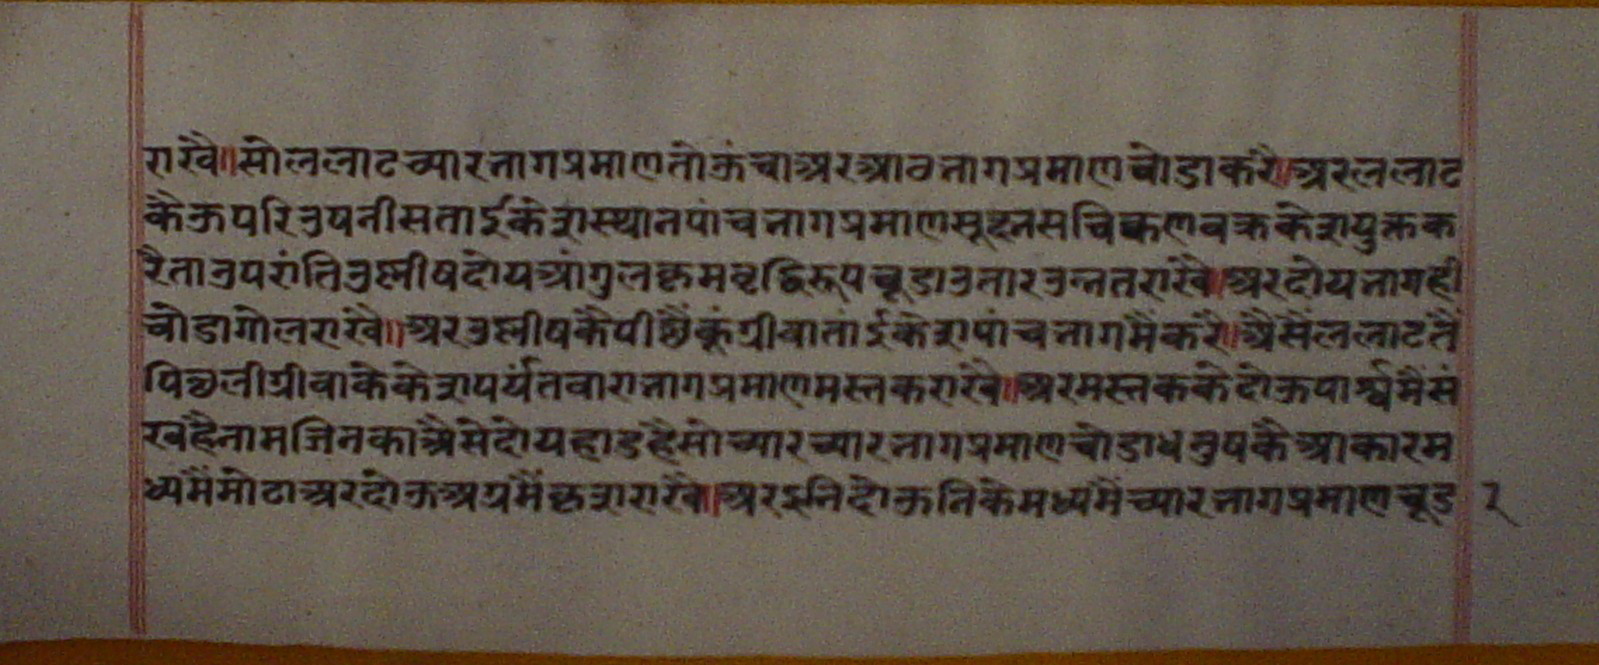 राखै॥सोललाटच्यारभागप्रमाणतोऊंचाअरआठभागप्रमाणचोडाकरै॥अरललाट
कैऊपरिउपनीसताईकेशस्थानपांचभागप्रमाणसूक्ष्मसचिक्कणवक्रकेशयुक्तक
रैताउपरांतिउश्नीषदोयआंगुलक्रमवृद्धिरूपचूडाउतारउन्नतराखै॥अरदोयभागही
चोडागोलराखै॥अरउश्नीषकैपीछैकूंग्रीवातांईकेशपांचभागमैंकरै॥अैसैंललाटतैं
पिछलीग्रीवाकेकेशपर्यंतबाराभागप्रमाणमस्तकराखै॥अरमस्तककेदोऊपार्श्वमैंसं
खहैनामजिनकाअैसेदोयहाडहैसोच्यारच्यारभागप्रमाणचोडाधनुषकैआकारम
ध्यमैंमोटाअरदोऊअग्रमैंकृशराखै॥अरइनिदोऊनिकेमध्यमैंच्यारभागप्रमाणचूड २